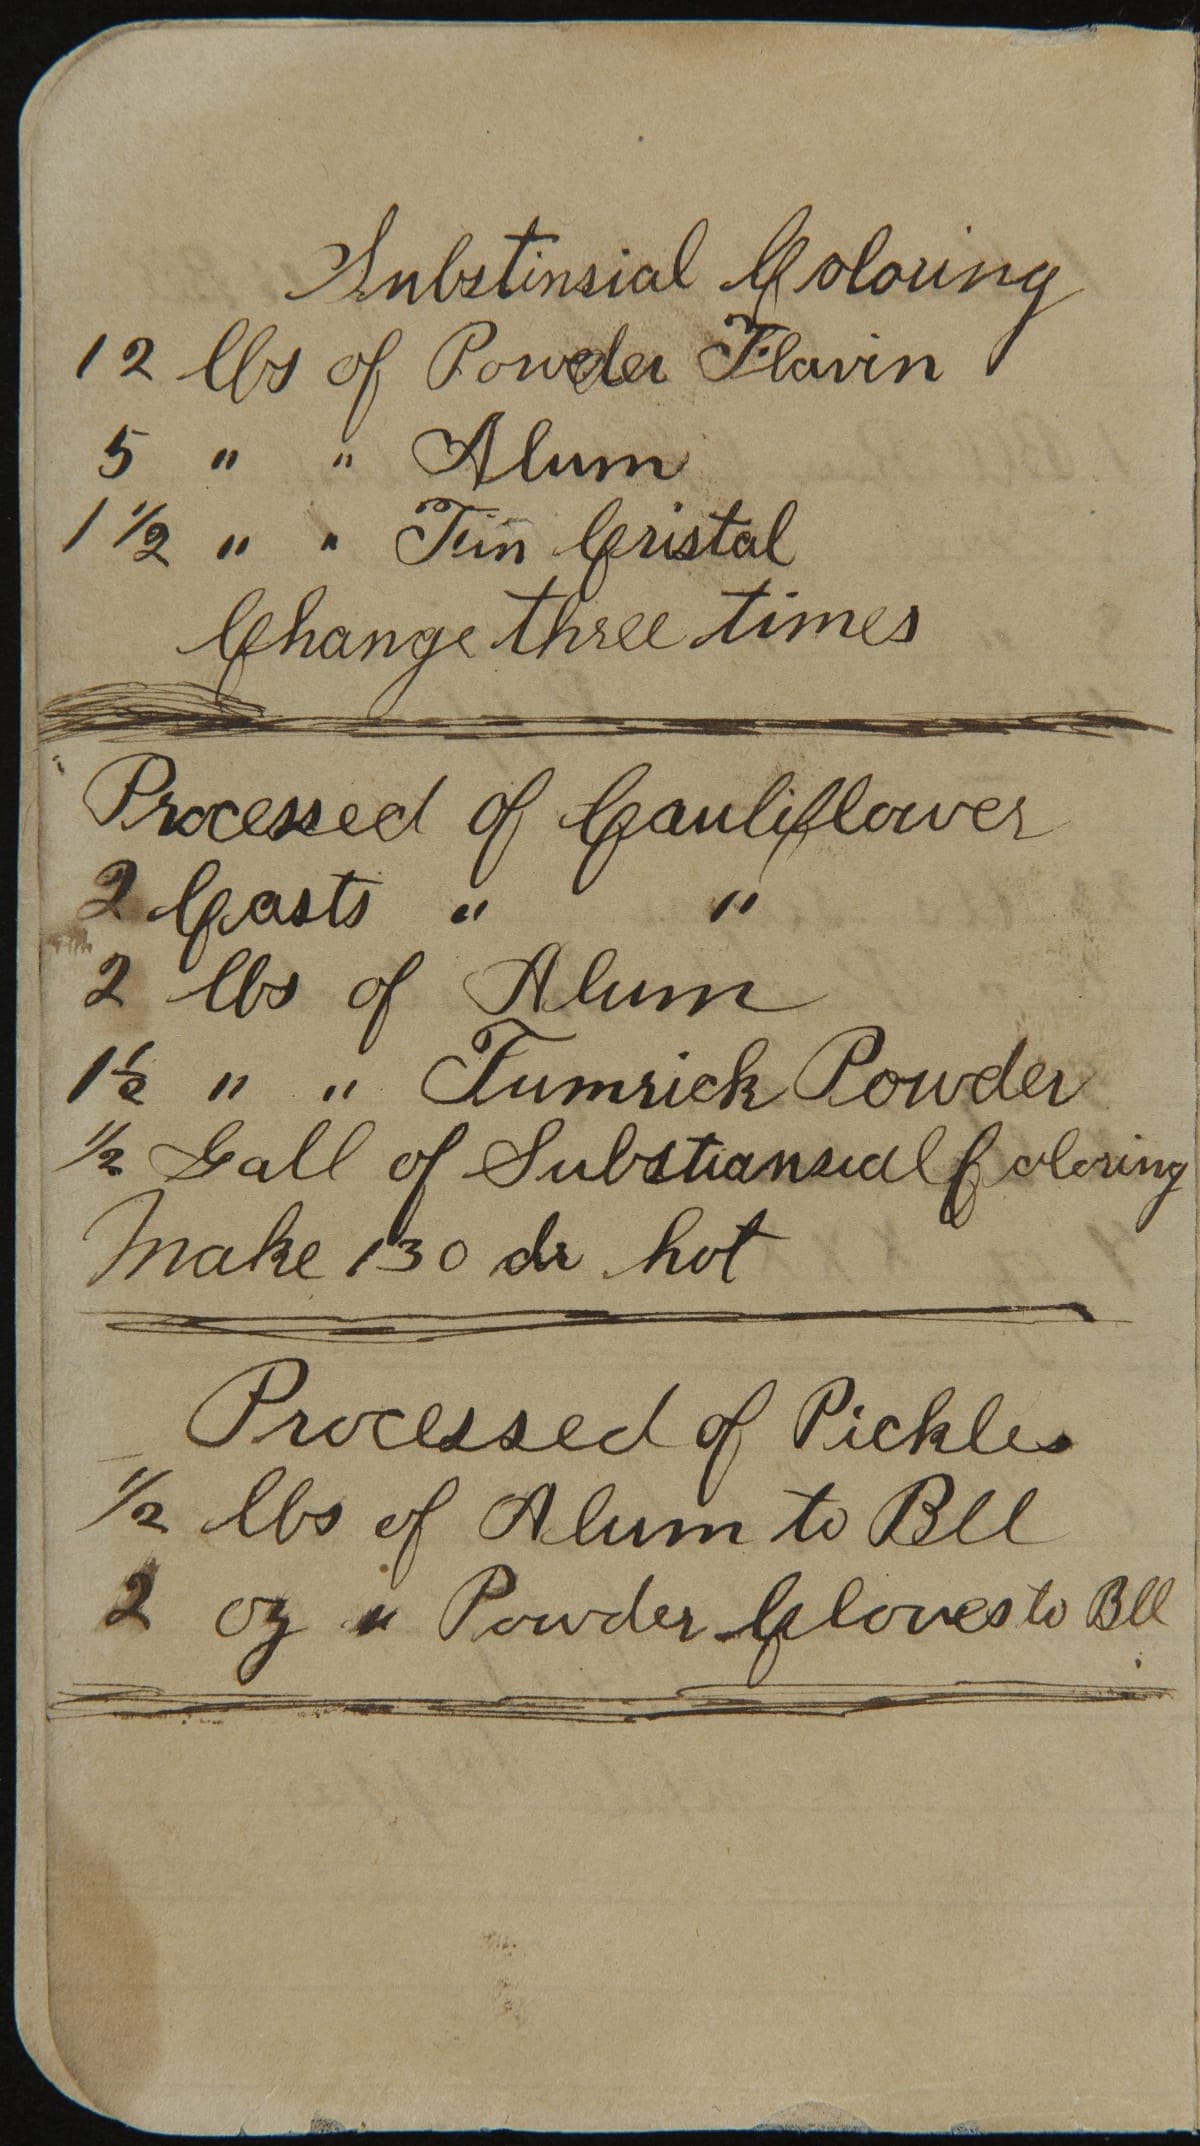 Substinsial Coloring
12 lbs of Powder Flavin
5 " " Alum
1 1/2 " " Tin Cristal
Change three times
Processed of Cauliflower
2 Casts " "
2 lbs of Alum
1 1/2 " " Tumrick Powder
1/2 Gall of Substiansial Coloring
Make 130 dr hot
Processed of Pickles
1/2 lbs of Alum to Bll
2 oz " Powder Cloves to Bll